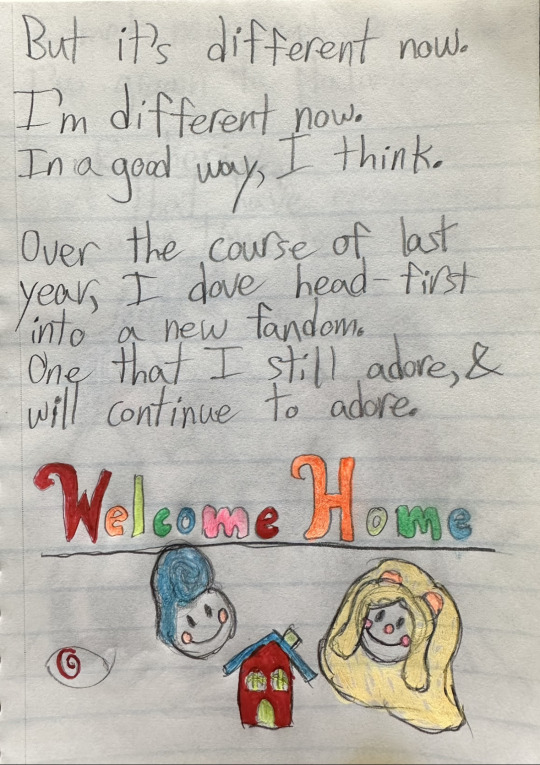 But it's different now.
I'm different now.
In a good way, I think.
Over the course of last
year, I dove head-first
into a new fandom.
One that I still adore, &
will continue to adore.
Welcome Home